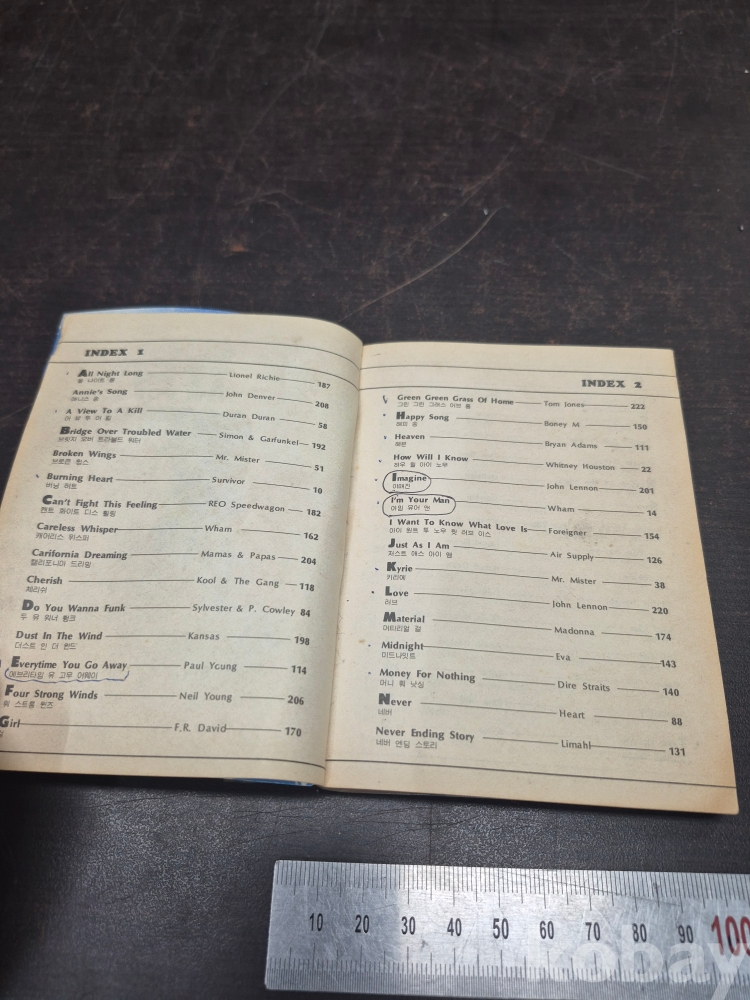 INDEX 1
All Night Long Lionel Richie 187
올 나이트 롱
Annie's Song John Denver 208
애니스 송
A View To A Kill Duran Duran 58
어 뷰 투 어 킬
Bridge Over Troubled Water Simon & Garfunkel 192
브릿지 오버 트라블드 워터
Broken Wings Mr. Mister 51
브로큰 윙스
Burning Heart Survivor 10
버닝 하트
Can't Fight This Feeling REO Speedwagon 182
캔트 화이트 디스 휠링
Careless Whisper Wham 162
캐어리스 위스퍼
Carifornia Dreaming Mamas & Papas 204
캘리포니아 드리밍
Cherish Kool & The Gang 118
체리쉬
Do You Wanna Funk Sylvester & P. Cowley 84
두 유 워너 훵크
Dust In The Wind Kansas 198
더스트 인 더 윈드
Everytime You Go Away Paul Young 114
에브리타임 유 고우 어웨이
Four Strong Winds Neil Young 206
훠 스트롱 윈즈
Girl F.R. David 170
INDEX 2
Green Green Grass Of Home Tom Jones 222
그린 그린 그래스 어브 홈
Happy Song Boney M 150
해피 송
Heaven Bryan Adams 111
헤븐
How Will I Know Whitney Houston 22
하우 윌 아이 노우
Imagine John Lennon 201
이매진
I'm Your Man Wham 14
아임 유어 맨
I Want To Know What Love Is Foreigner 154
아이 원트 투 노우 왓 러브 이스
Just As I Am Air Supply 126
저스트 애스 아이 엠
Kyrie Mr. Mister 38
키리에
Love John Lennon 220
러브
Material Madonna 174
머티리얼 걸
Midnight Eva 143
미드나잇트
Money For Nothing Dire Straits 140
머니 훠 낫싱
Never Heart 88
네버
Never Ending Story Limahl 131
네버 엔딩 스토리
10 20 30 40 50 60 70 80 90 100
kobay